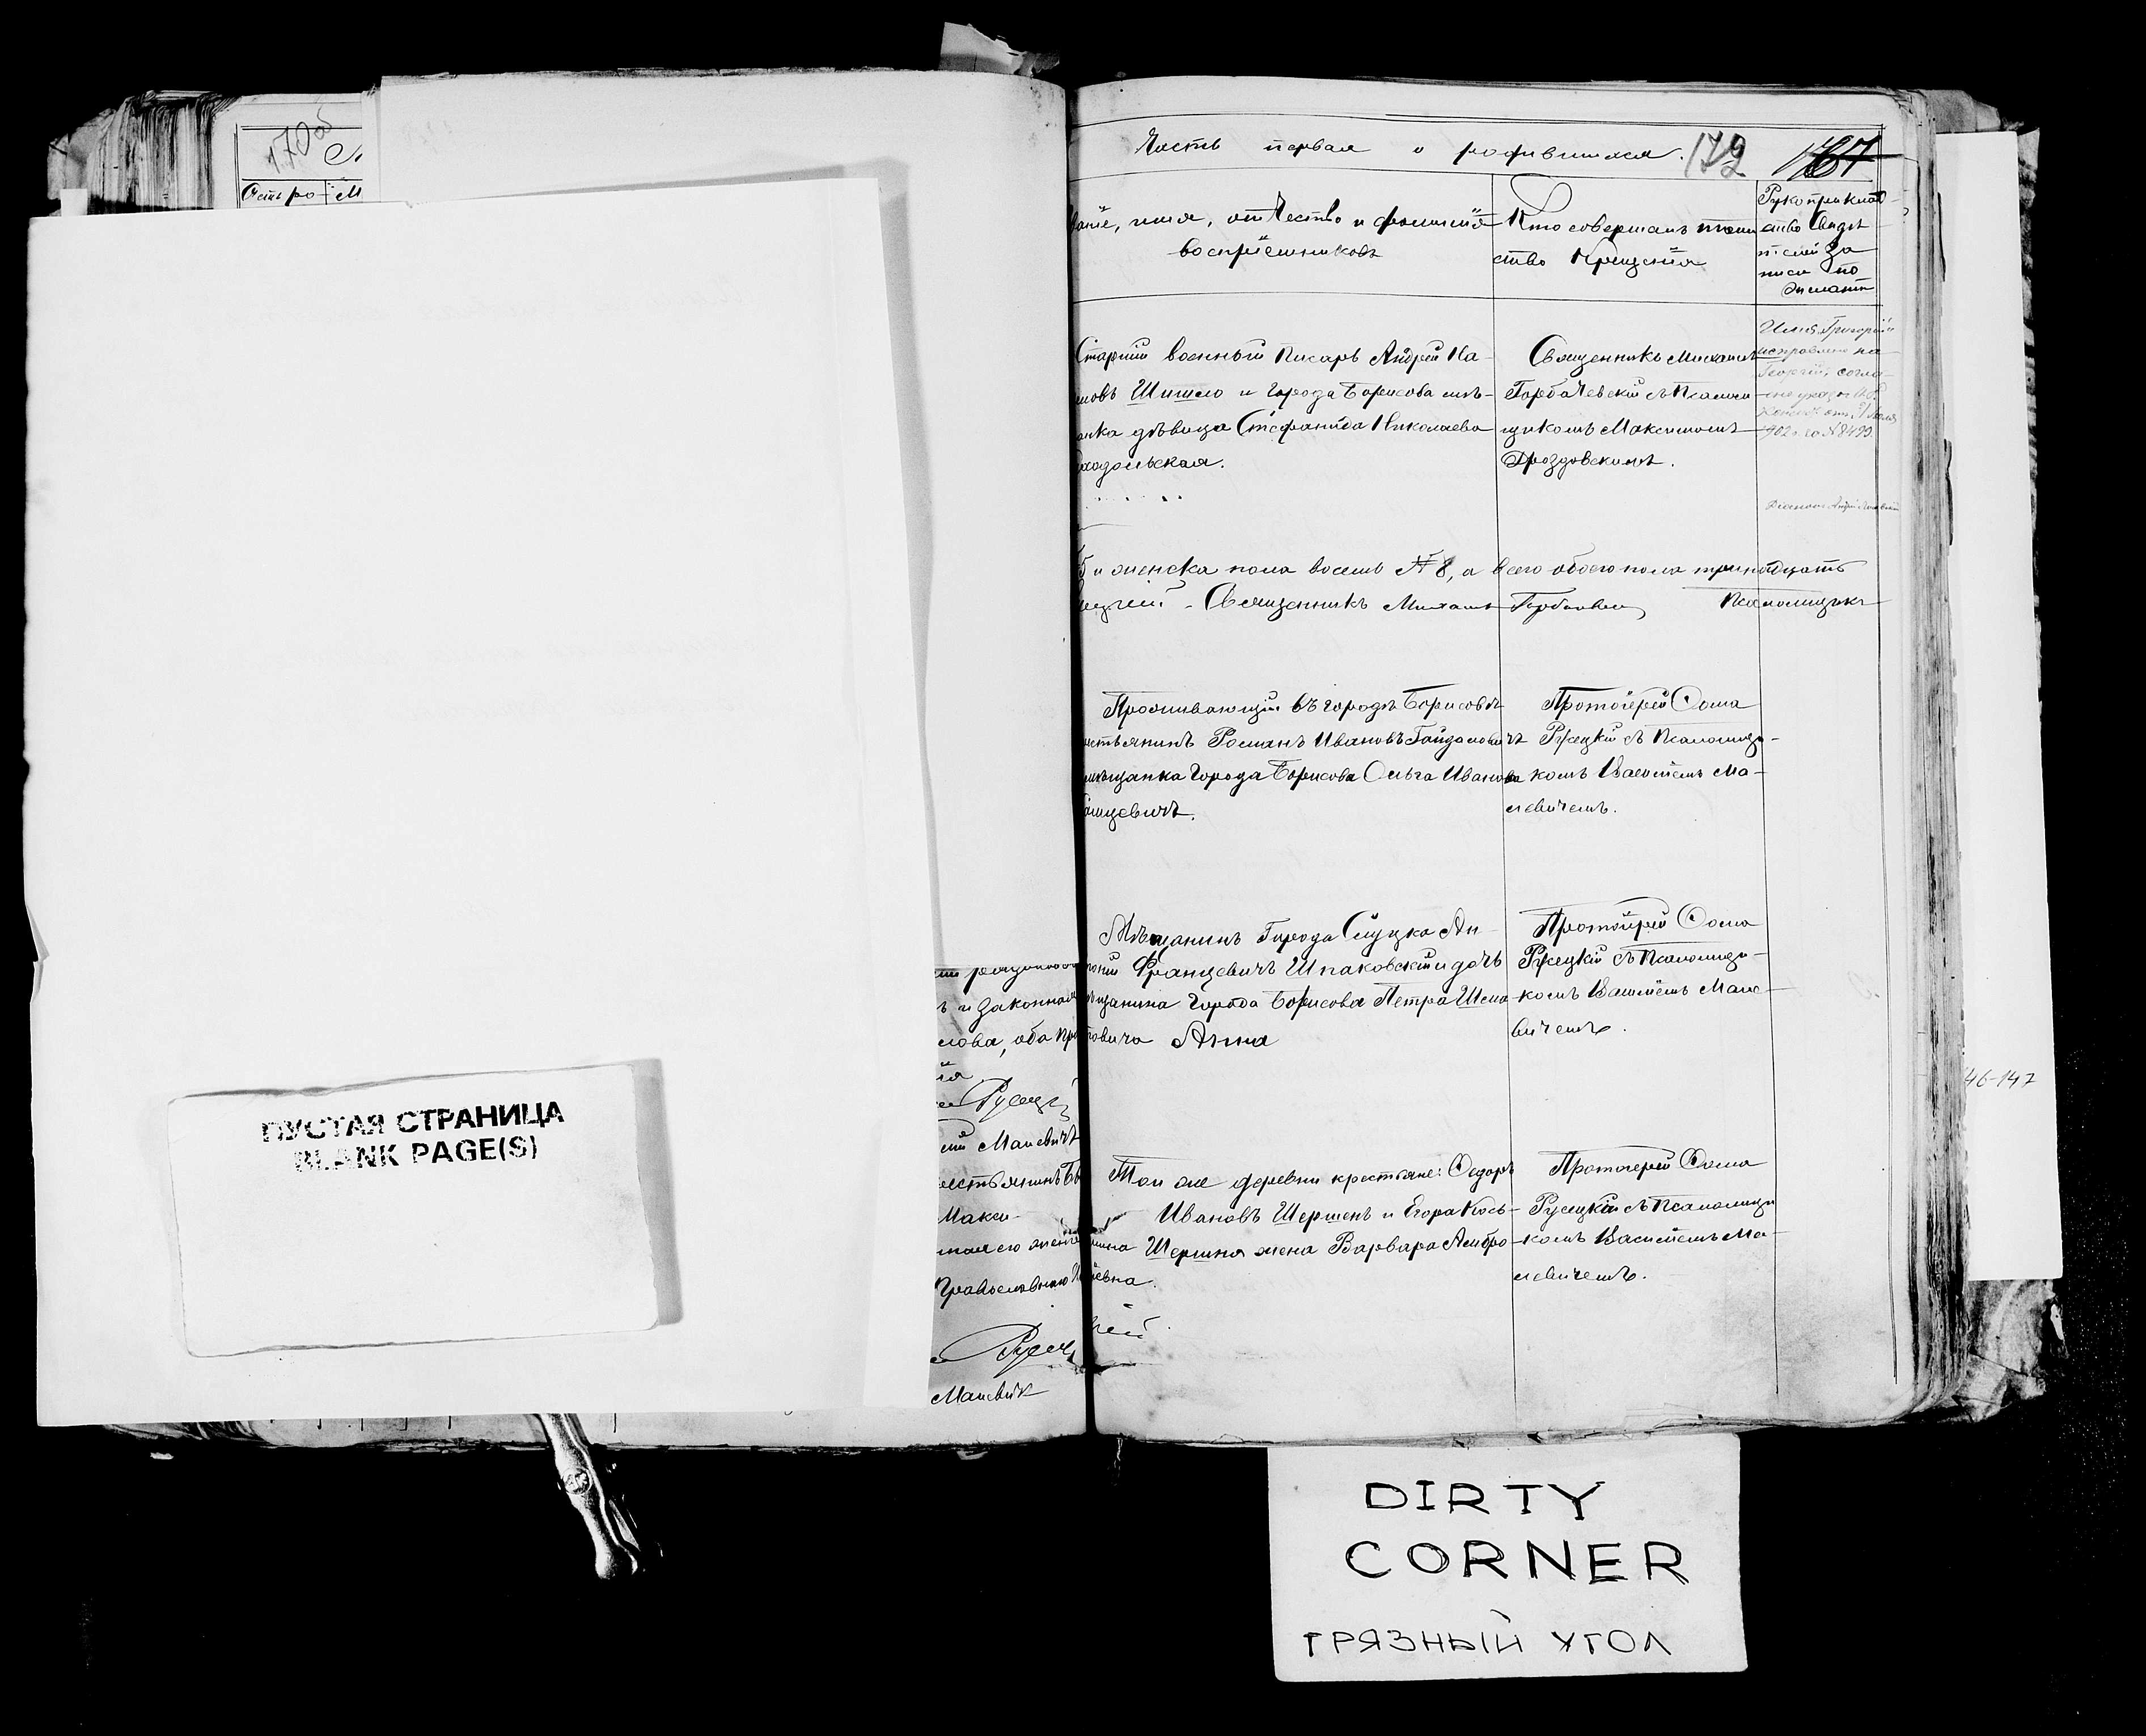 170 об
Часть первая о родившихся. 172 167
Званіе, имя, отчество и фамилія
воспріемниковъ
Кто совершалъ таин
ство Крещенія
Рукоприклад-
ство Свидѣ
телей За
писи по
желанію
Старшій военный писарь Андрей Па-
Шишло и города Борисова мѣ-
анка дѣвица Стефанида Николаева
Священникъ Михаилъ
Горбачевскій съ Псаломщ-
щикомъ Максимомъ
Дроздовскимъ.
Имя Григорій
исправлено на
Георгій, согла-
902 г. за № 8499.
и женска пола восемь № 8, а всего обоего пола тринадцать
Священникъ Михаилъ Горбачевскій Псаломщикъ
Проживающій въ городѣ Борисовѣ
естьянинъ Романъ Ивановъ Гайдаловичъ
мѣщанка города Борисова Ольга Иванова
Протоіерей Ѳома
Русецкій съ Псаломщи-
комъ Василіемъ Ма-
левичемъ.
Мѣщанинъ Города Слуцка Ан-
тоній Францевичъ Шпаковскій и дочь
ѣщанина города Борисова Петра
овича Анна
Протоіерей Ѳома
Русецкій съ Псаломщи-
комъ Василіемъ Мале-
вичемъ.
ъ и законная
слова, оба пра
Русецкій
Малевичъ
Макси-
Православнаго
Русецк
Малевичъ
Той же деревни крестьяне: Ѳедоръ
Ивановъ Шершень и Егора Кось-
мина Шершня жена Варвара Амбро-
сіевна.
Протоіерей Ѳома
Русецкій съ Псаломщи
комъ Василіемъ Ма-
левичемъ.
46-147
ПУСТАЯ СТРАНИЦА
BLANK PAGE(S)
DIRTY
CORNER
ГРЯЗНЫЙ УГОЛ